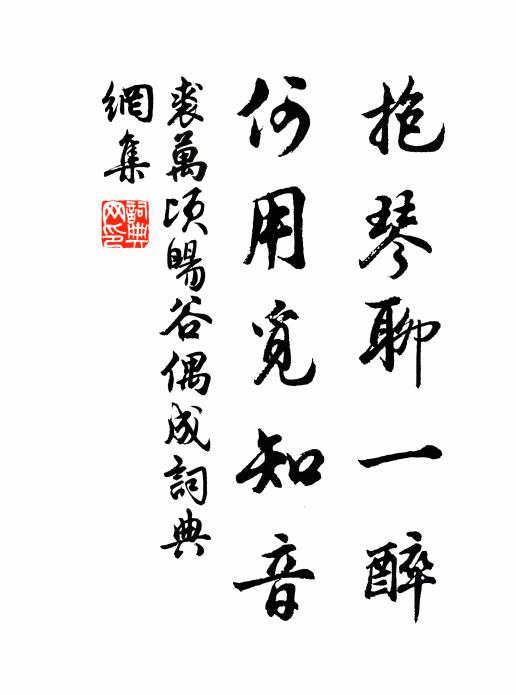 抱琴聊一醉
何用覓知音
裘萬頃暘谷偶成詞典
網集
詞典網印